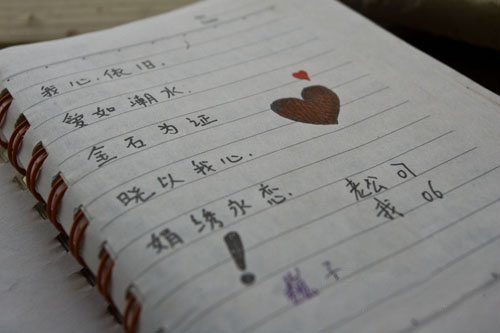 我心依旧.
爱如潮水.
金石为证
晓以我心.
娟绣永恋.
老公 07
我 06
!
子